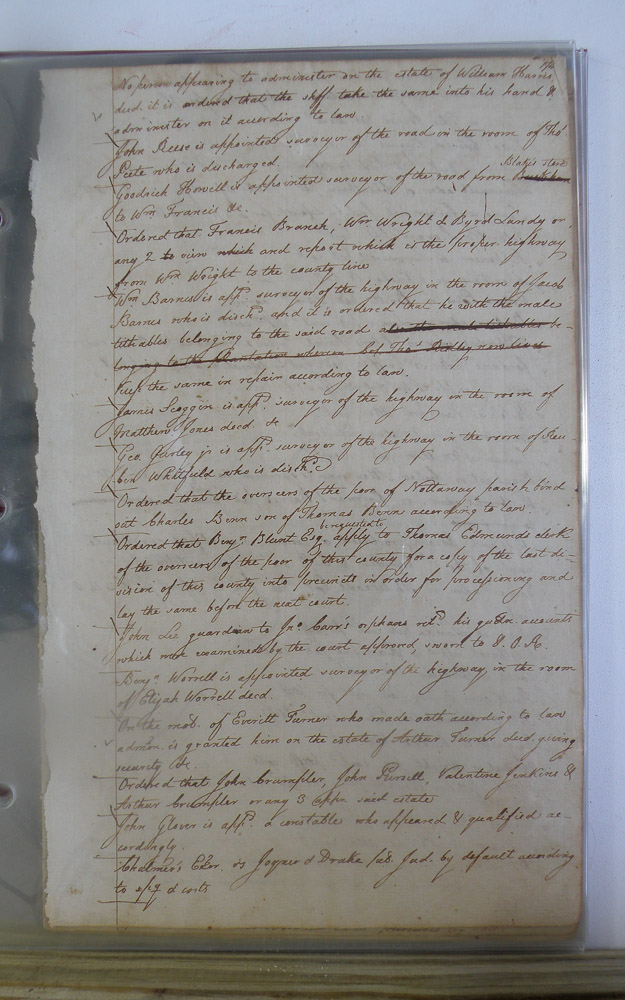 No person appearing to administer on the estate of William Harris
decd. it is ordered that the shff take the same into his hand &
administer on it according to law.
John Reese is appointed surveyor of the road in the room of Thos.
Peete who is discharged.
Blake's store
Goodrich Howell is appointed surveyor of the road from
to Wm. Francis &c.
Ordered that Francis Branch, Wm. Wright & Byrd Landy or
any 2 to view which and report which is the proper highway
from Wm. Wright to the county line
Wm. Barnes is appd. surveyor of the highway in the room of Jacob
Barnes who is dischd. and it is ordered that he with the male
tithables belonging to the said road also the male tithables be-
longing to the Plantation whereon Thos. Ridley now lives
keep the same in repair according to law.
James Scoggin is appd. surveyor of the highway in the room of
Matthew Jones decd. &c
Geo. Gurley jr is appd. surveyor of the highway in the room of Reu-
ben Whitfield who is dischd.
Ordered that the overseers of the poor of Nottoway parish bind
out Charles Benn son of Thomas Benn according to law.
be requested to
Ordered that Benjn. Blunt Esq. apply to Thomas Edmunds clerk
of the overseers of the poor of this county for a copy of the last di-
vision of this county into precincts in order for processioning and
lay the same before the next court.
John Lee guardian to Jno. Carr's orphans retd. his gudn. accounts
which were examined by the court approved, sworn to & O.R.
Benjn. Worrell is appointed surveyor of the highway, in the room
of Elijah Worrell decd.
On the mot. of Everitt Turner who made oath according to law
admon. is granted him on the estate of Arthur Turner decd. giving
security &c.
Ordered that John Crumpler, John Pursell, Valentine Jenkins &
Arthur Crumpler or any 3 appr. said estate
John Glover is appd. a constable who appeared & qualified ac-
cordingly.
Chalmer's Exor. vs Joyner & Drake Jud. by default according
to & costs